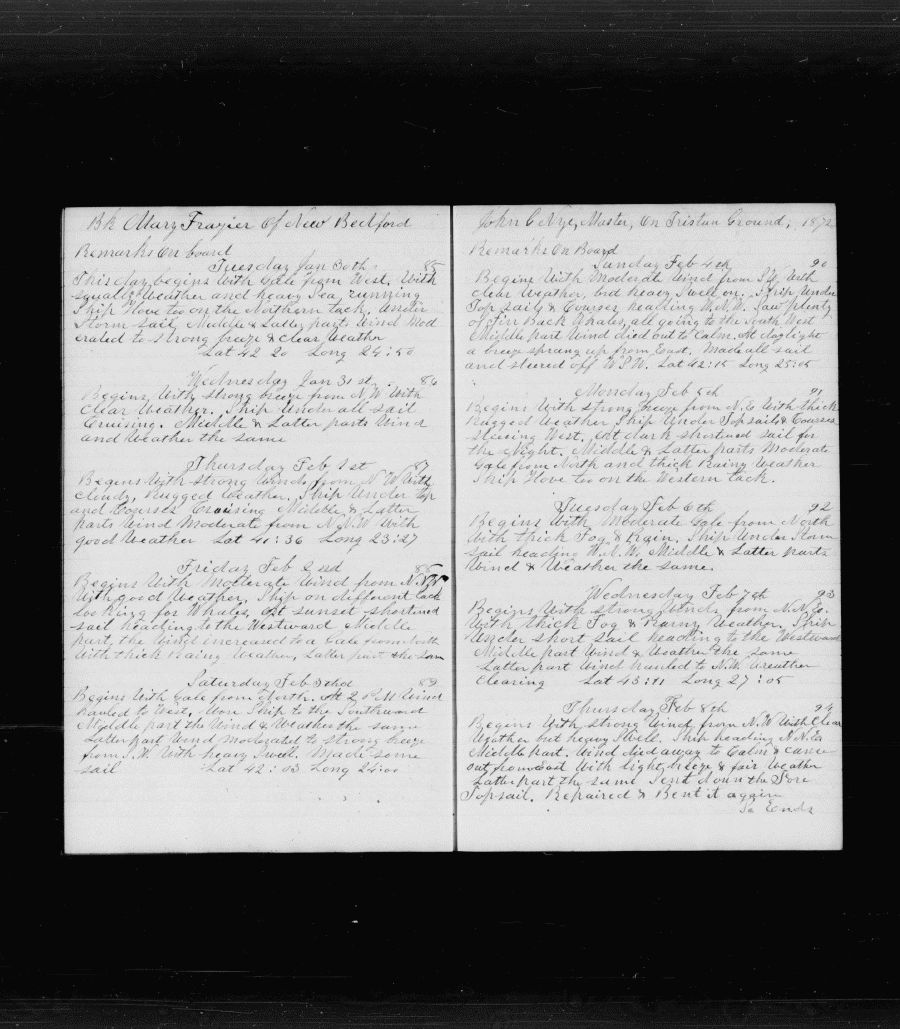 Bk Mary Frazier Of New Bedford
Remarks On board
Tuesday Jan 30th 85
This day begins With Gale from West. With
squally Weather and heavy Sea running
Ship Hove too on the Northern tack. Under
Storm sail, Middle & Latter parts Wind Mod
erated to strong breeze & clear Weather
Lat 42 20 Long 24:50
Wednesday Jan 31st 86
Begins With strong breeze from N.W With
Clear Weather. Ship Under all sail
Cruising. Middle & Latter parts Wind
and Weather the same
Thursday Feb 1st 87
Begins With strong Winds from N.W With
cloudy, Rugged Weather. Ship Under Top
and Courses Cruising Middle & Latter
parts Wind Moderate from N.N.W With
good Weather Lat 41:36 Long 23:27
Friday Feb 2nd 88
Begins With Moderate Wind from
With good Weather. Ship on different tack
Looking for Whales, At sunset shortened
sail heading to the Westward Middle
part, the Wind increased to a Gale from North
With thick Rainy Weather, Latter part the same
Saturday Feb 3rd 89
Begins With Gale from North. At 2 P.M Wind
hauled to West, Wore Ship to the Southward
Middle part the Wind & Weather the same
Latter part Wind moderated to strong breeze
from S.W. With heavy Swell. Made some
sail Lat 42:03 Long 24:00
John C Nye, Master, On Tristan Ground, 1872
Remarks On Board
Sunday Feb 4th 90
Begins With Moderate Wind from S.W. With
clear Weather, but heavy Swell on. Ship Under
Top sails & Courses heading W.N.W. Saw plenty
of Finn Back Whales, all going to the South West
Middle part Wind died out to Calm. At daylight
a breeze sprang up from East. Made all sail
and steered off W.S.W. Lat 42:15 Long 25:05
Monday Feb 5th 91
Begins With Strong breeze from N.E With thick
Rugged Weather Ship Under Topsails & Courses
steering West. At dark shortened sail for
the Night. Middle & Latter parts Moderate
Gale from North and thick Rainy Weather
Ship Hove too on the Western tack.
Tuesday Feb 6th 92
Begins With Moderate Gale from North
With thick Fog & Rain. Ship Under Storm
sail heading W.N.W. Middle & Latter parts
Wind & Weather the same.
Wednesday Feb 7th 93
Begins With Strong Winds from N.N.E.
With thick Fog & Rainy Weather. Ship
Under short sail heading to the Westward
Middle part Wind & Weather the same
Latter part Wind hauled to N.W Weather
Clearing Lat 43:11 Long 27:05
Thursday Feb 8th 94
Begins With Strong Wind from N.W With Clear
Weather but heavy Swell. Ship heading N.N.E.
Middle part. Wind died away to Calm & came
out from East With light breeze & fair Weather
Latter part the same Sent down the Fore
Topsail. Repaired & Bent it again
So Ends